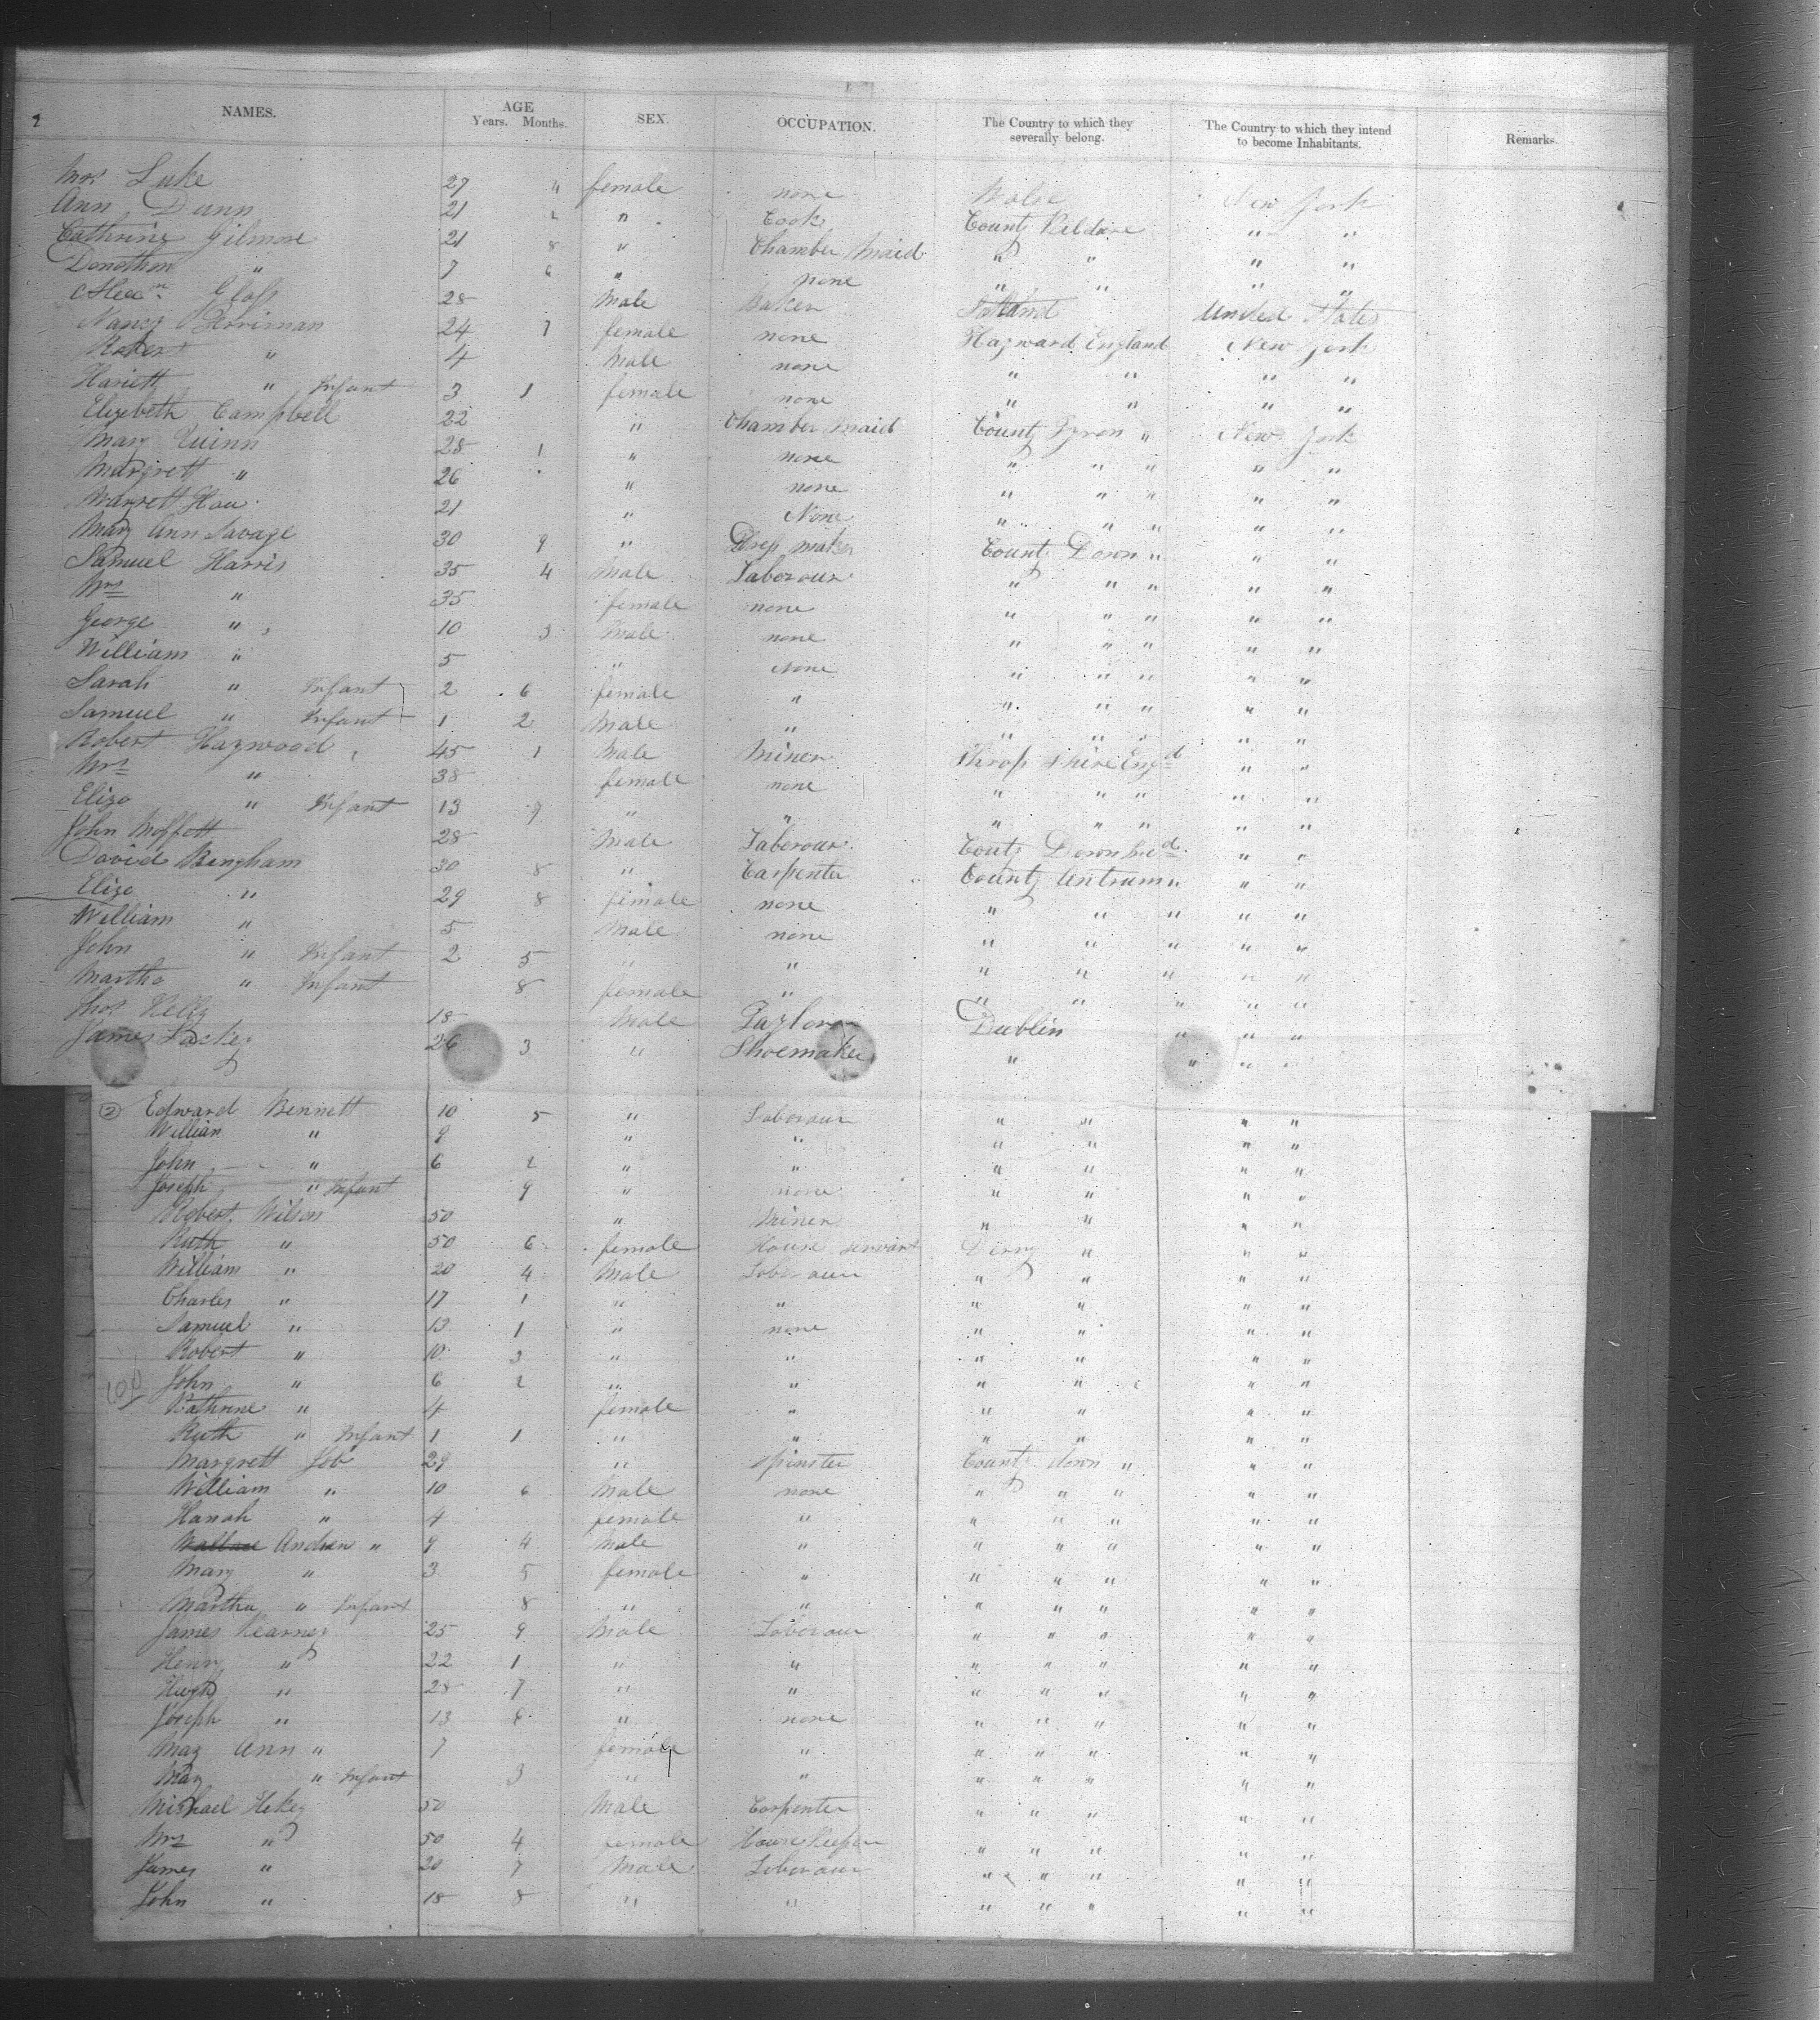 NAMES. AGE Years. Months. SEX. OCCUPATION. The Country to which they severally belong. The Country to which they intend to become Inhabitants. Remarks.
Mrs Luke 27 female none New York
Ann Dunn 21 " Cook County Kildare " "
Cathrine Gilmore 21 8 " Chamber Maid " " " "
" 7 6 " none " " " "
28 Male Baker United States
Nancy Berriman 24 7 female none Hayward England New York
Robert " 4 Male none " " " "
Hariett " Infant 3 1 female none " " " "
Elizebeth Campbell 22 " Chamber Maid County Tyron " New York
Mary Quinn 28 1 " none " " " " "
Margrett " 26 " none " " " " "
Margrett 21 " None " " " " "
Mary Ann Savage 30 9 " Dress maker County Down " " "
Samuel Harris 35 4 Male Laborour " " " " "
Mrs " 35 female none " " " " "
George " 10 3 Male none " " " " "
William " 5 " None " " " " "
Sarah " Infant 2 6 female " " " " " "
Samuel " Infant 1 2 Male " " " " " "
Robert Haywood 45 1 Male Miner Shrop Shire Engd " "
Mrs " 38 female none " " " " "
Eliza " Infant 13 9 " " " " " " "
John Moffett 28 Male Laborour Couty Down Ired " "
David Bengham 30 8 " Carpenter County Antrum " " "
Eliza " 29 8 female none " " " " "
William " 5 Male none " " " " "
John " Infant 2 5 " " " " " " "
Martha " Infant 8 female " " " " " "
Thos Kelly 18 Male Taylor Dublin " " "
James 26 3 " Shoemaker " " " "
2 Edward Bennett 10 5 " Laborour " " " "
William " 9 " " " " " "
John " 6 2 " " " " " "
Joseph " Infant 9 " none " " " "
Robert Wilson 50 " Miner " " " "
Ruth " 50 6 female House servant Derry " " "
William " 20 4 Male Laborour " " " "
Charles " 17 1 " " " " " "
Samuel " 13 1 " none " " " "
Robert " 10 3 " " " " " "
John " 6 2 " " " " " "
Kathrine " 4 female " " " " "
Ruth " Infant 1 1 " " " " " "
Margrett Job 29 " Spinster County down " " "
William " 10 6 Male none " " " " "
Hanah " 4 female " " " " " "
Wallace Andrew " 9 4 Male " " " " " "
Mary " 3 5 female " " " " " "
Martha " Infant 8 " " " " " " "
James Kearney 25 9 Male Laborour " " " " "
Henry " 22 1 " " " " " " "
Hugh " 28 7 " " " " " " "
Joseph " 13 8 " none " " " " "
May Ann " 7 female " " " " " "
May " Infant 3 " " " " " " "
Michael 50 Male Carpenter " " " " "
Mrs " 50 4 female House Keeper " " " " "
James " 20 7 Male Laborour " " " " "
John " 18 8 " " " " " " "